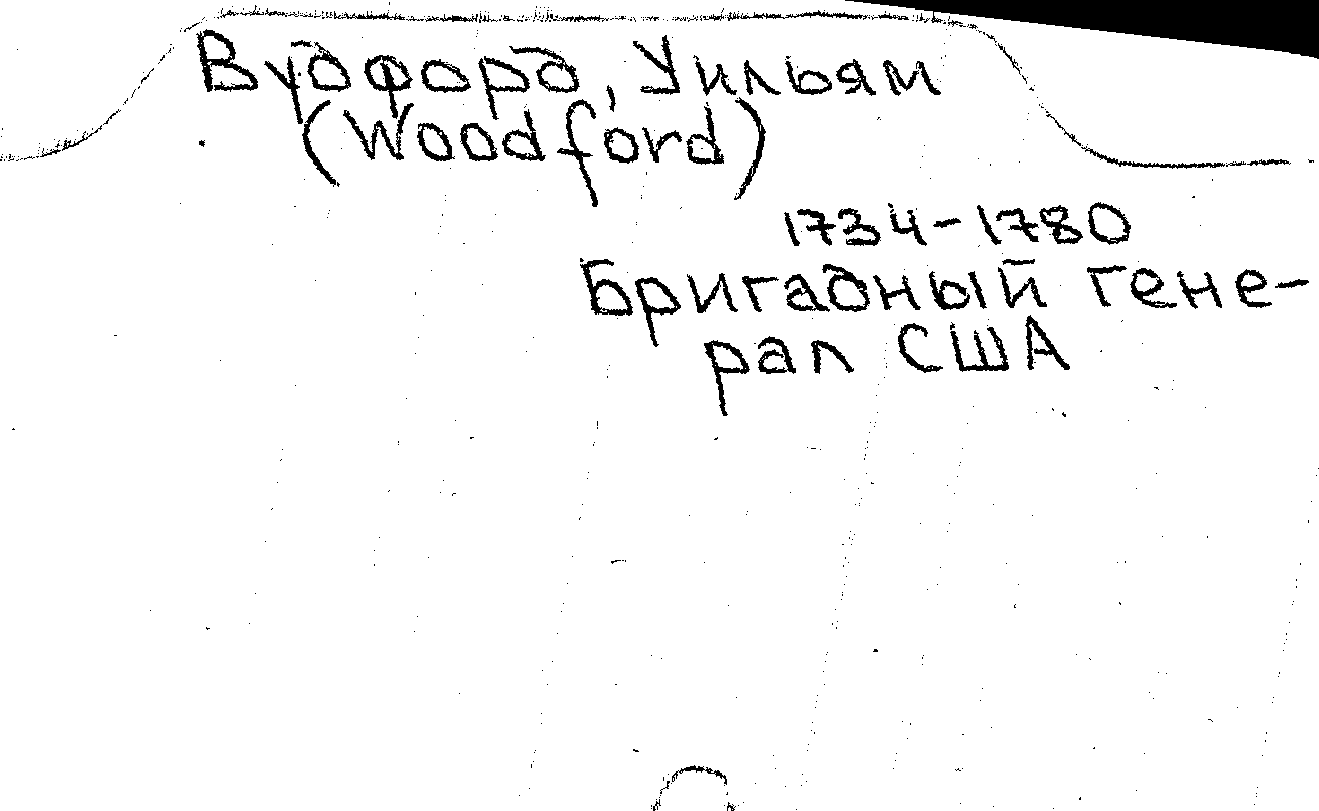 Вудфорд, Уильям
(Woodford)
1734-1780
Бригадный гене-
рал США